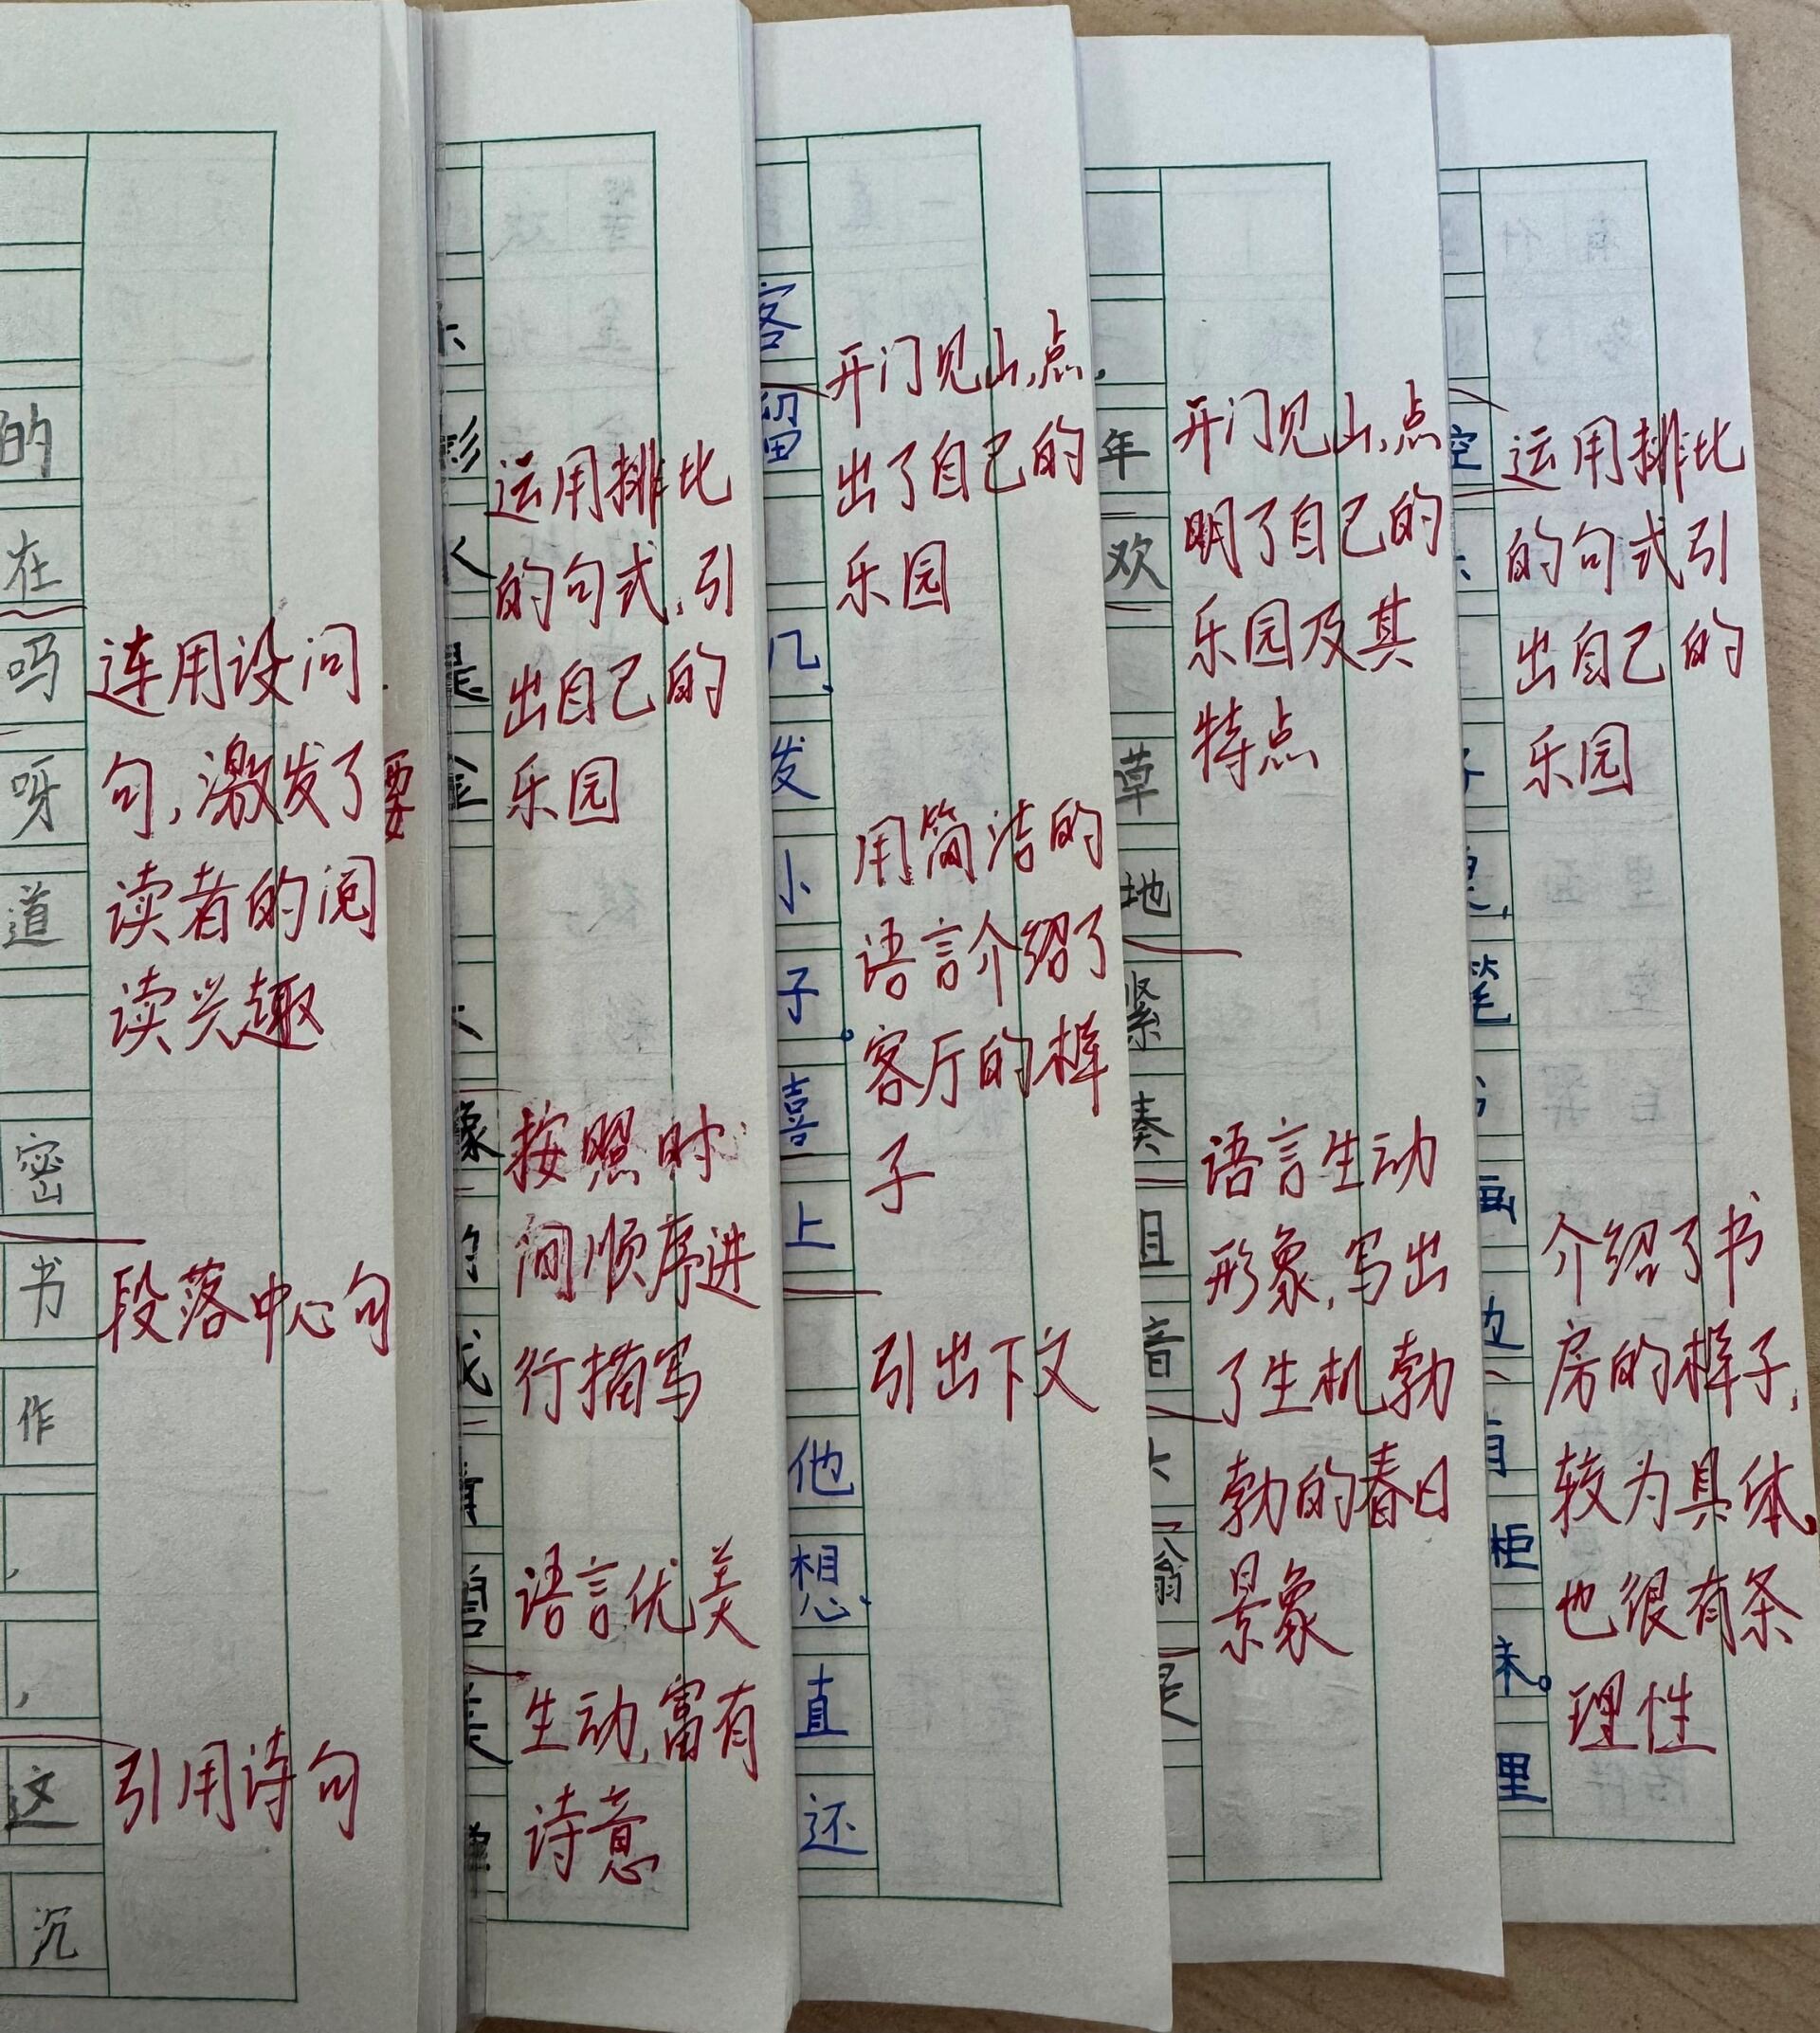 的
在
吗
呀
道
密
书
作
，
，
这
沉
连用设问
句,激发了
读者的阅
读兴趣
段落中心句
引用诗句
要
彭
像
运用排比
的句式,引
出自己的
乐园
按照时
间顺序进
行描写
语言优美
生动,富有
诗意
客
留
几,
发
小
子。
喜
上
他
想,
直
还
开门见山,点
出了自己的
乐园
用简洁的
语言介绍了
客厅的样
子
引出下文
年
欢
草
地
紧
凑
且
音
翁
是
开门见山,点
明了自己的
乐园及其
特点
语言生动
形象,写出
了生机勃
勃的春日
景象
空
笔
画
边
柜
里
运用排比
的句式引
出自己的
乐园
介绍了书
房的样子,
较为具体,
也很有条
理性